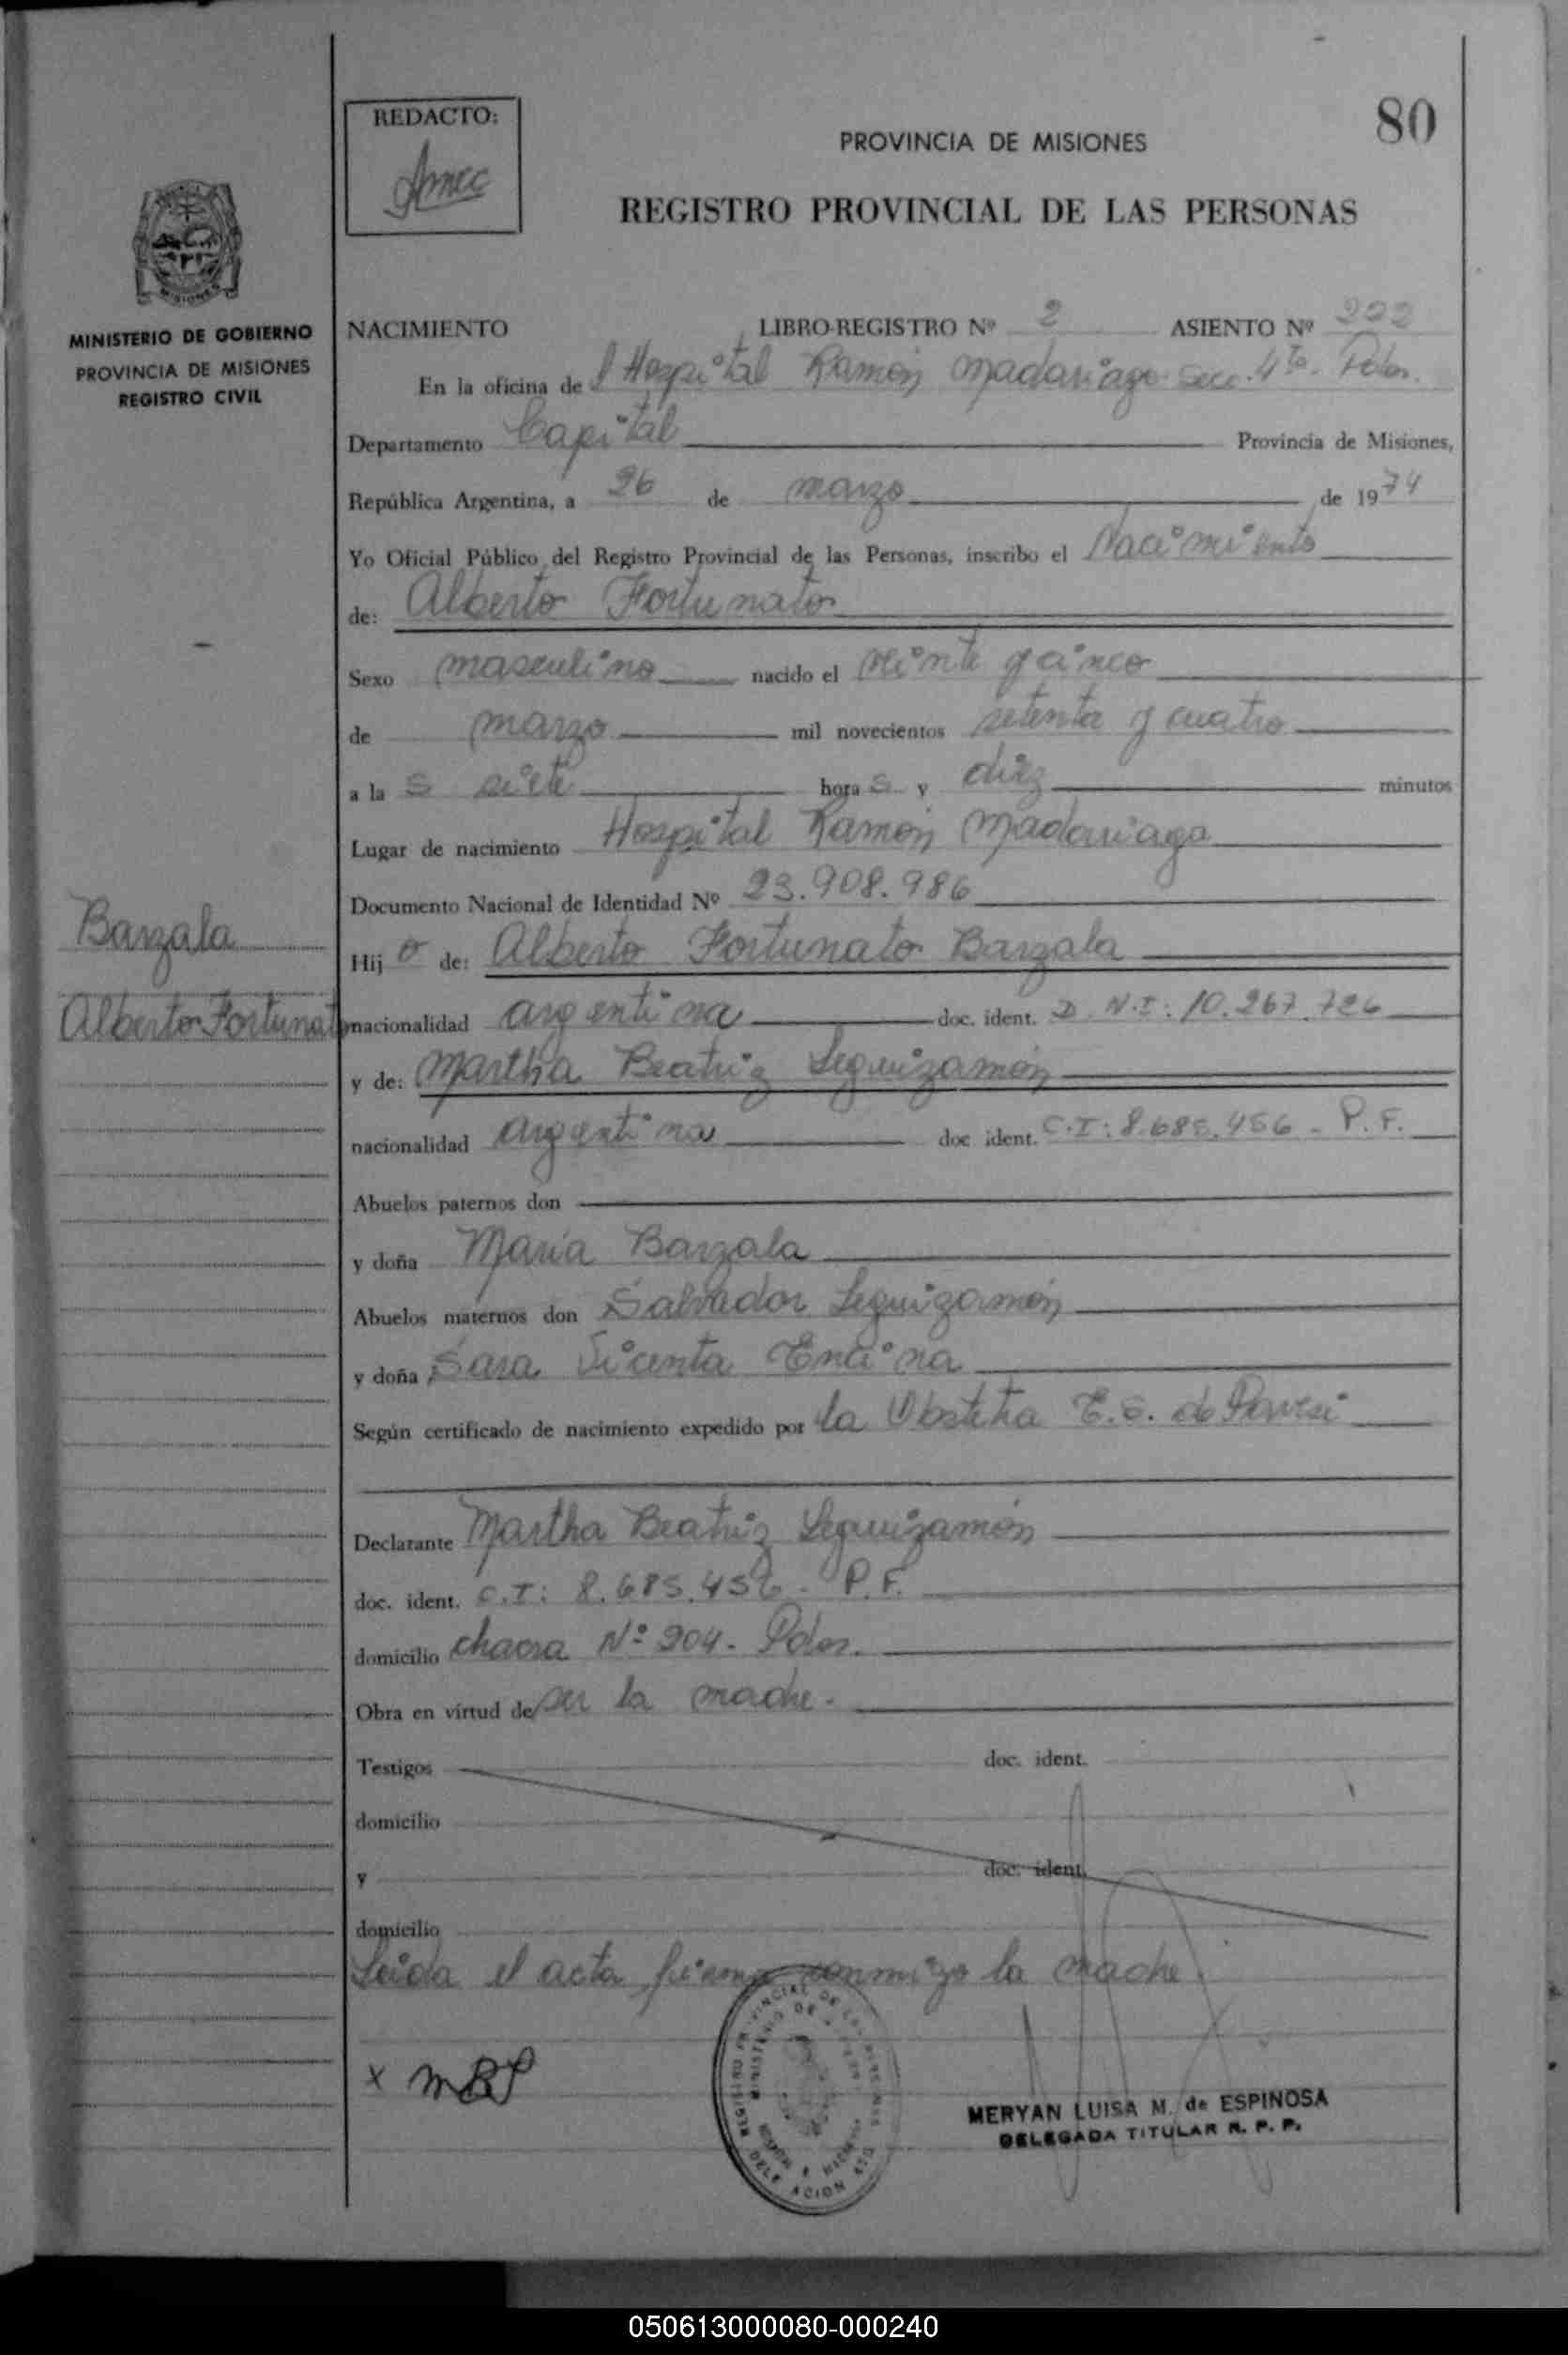 80
REDACTO:
PROVINCIA DE MISIONES
REGISTRO PROVINCIAL DE LAS PERSONAS
MINISTERIO DE GOBIERNO
PROVINCIA DE MISIONES
REGISTRO CIVIL
NACIMIENTO LIBRO-REGISTRO Nº 2 ASIENTO Nº 222
En la oficina de l Hospital Ramón Madariaga Secc. 4ta. Pdas.
Departamento Capital Provincia de Misiones,
República Argentina, a 26 de marzo de 1974
Yo Oficial Público del Registro Provincial de las Personas, inscribo el Nacimiento
de: Alberto Fortunato
Sexo masculino nacido el veinte y cinco
de marzo mil novecientos setenta y cuatro
a la s siete hora s y diez minutos
Lugar de nacimiento Hospital Ramón Madariaga
Documento Nacional de Identidad Nº 23.908.986
Barzala
Hij o de: Alberto Fortunato Barzala
Alberto Fortunato
nacionalidad argentina doc. ident. D.N.I: 10.267.726
y de: Martha Beatriz Leguizamón
nacionalidad argentina doc ident. C.I: 8.685.456 - P.F.
Abuelos paternos don
y doña María Barzala
Abuelos maternos don Salvador Leguizamón
y doña Sara Vicenta Encina
Según certificado de nacimiento expedido por la Obstetra E.S. de
Declarante Martha Beatriz Leguizamón
doc. ident. C.I: 8.685.456 - P.F.
domicilio chacra Nº 204 - Pdas.
Obra en virtud de ser la madre.
Testigos doc. ident.
domicilio
y doc. ident.
domicilio
Leida el acta firma conmigo la madre
x MBL
MERYAN LUISA M. de ESPINOSA
DELEGADA TITULAR R. P. P.
050613000080-000240